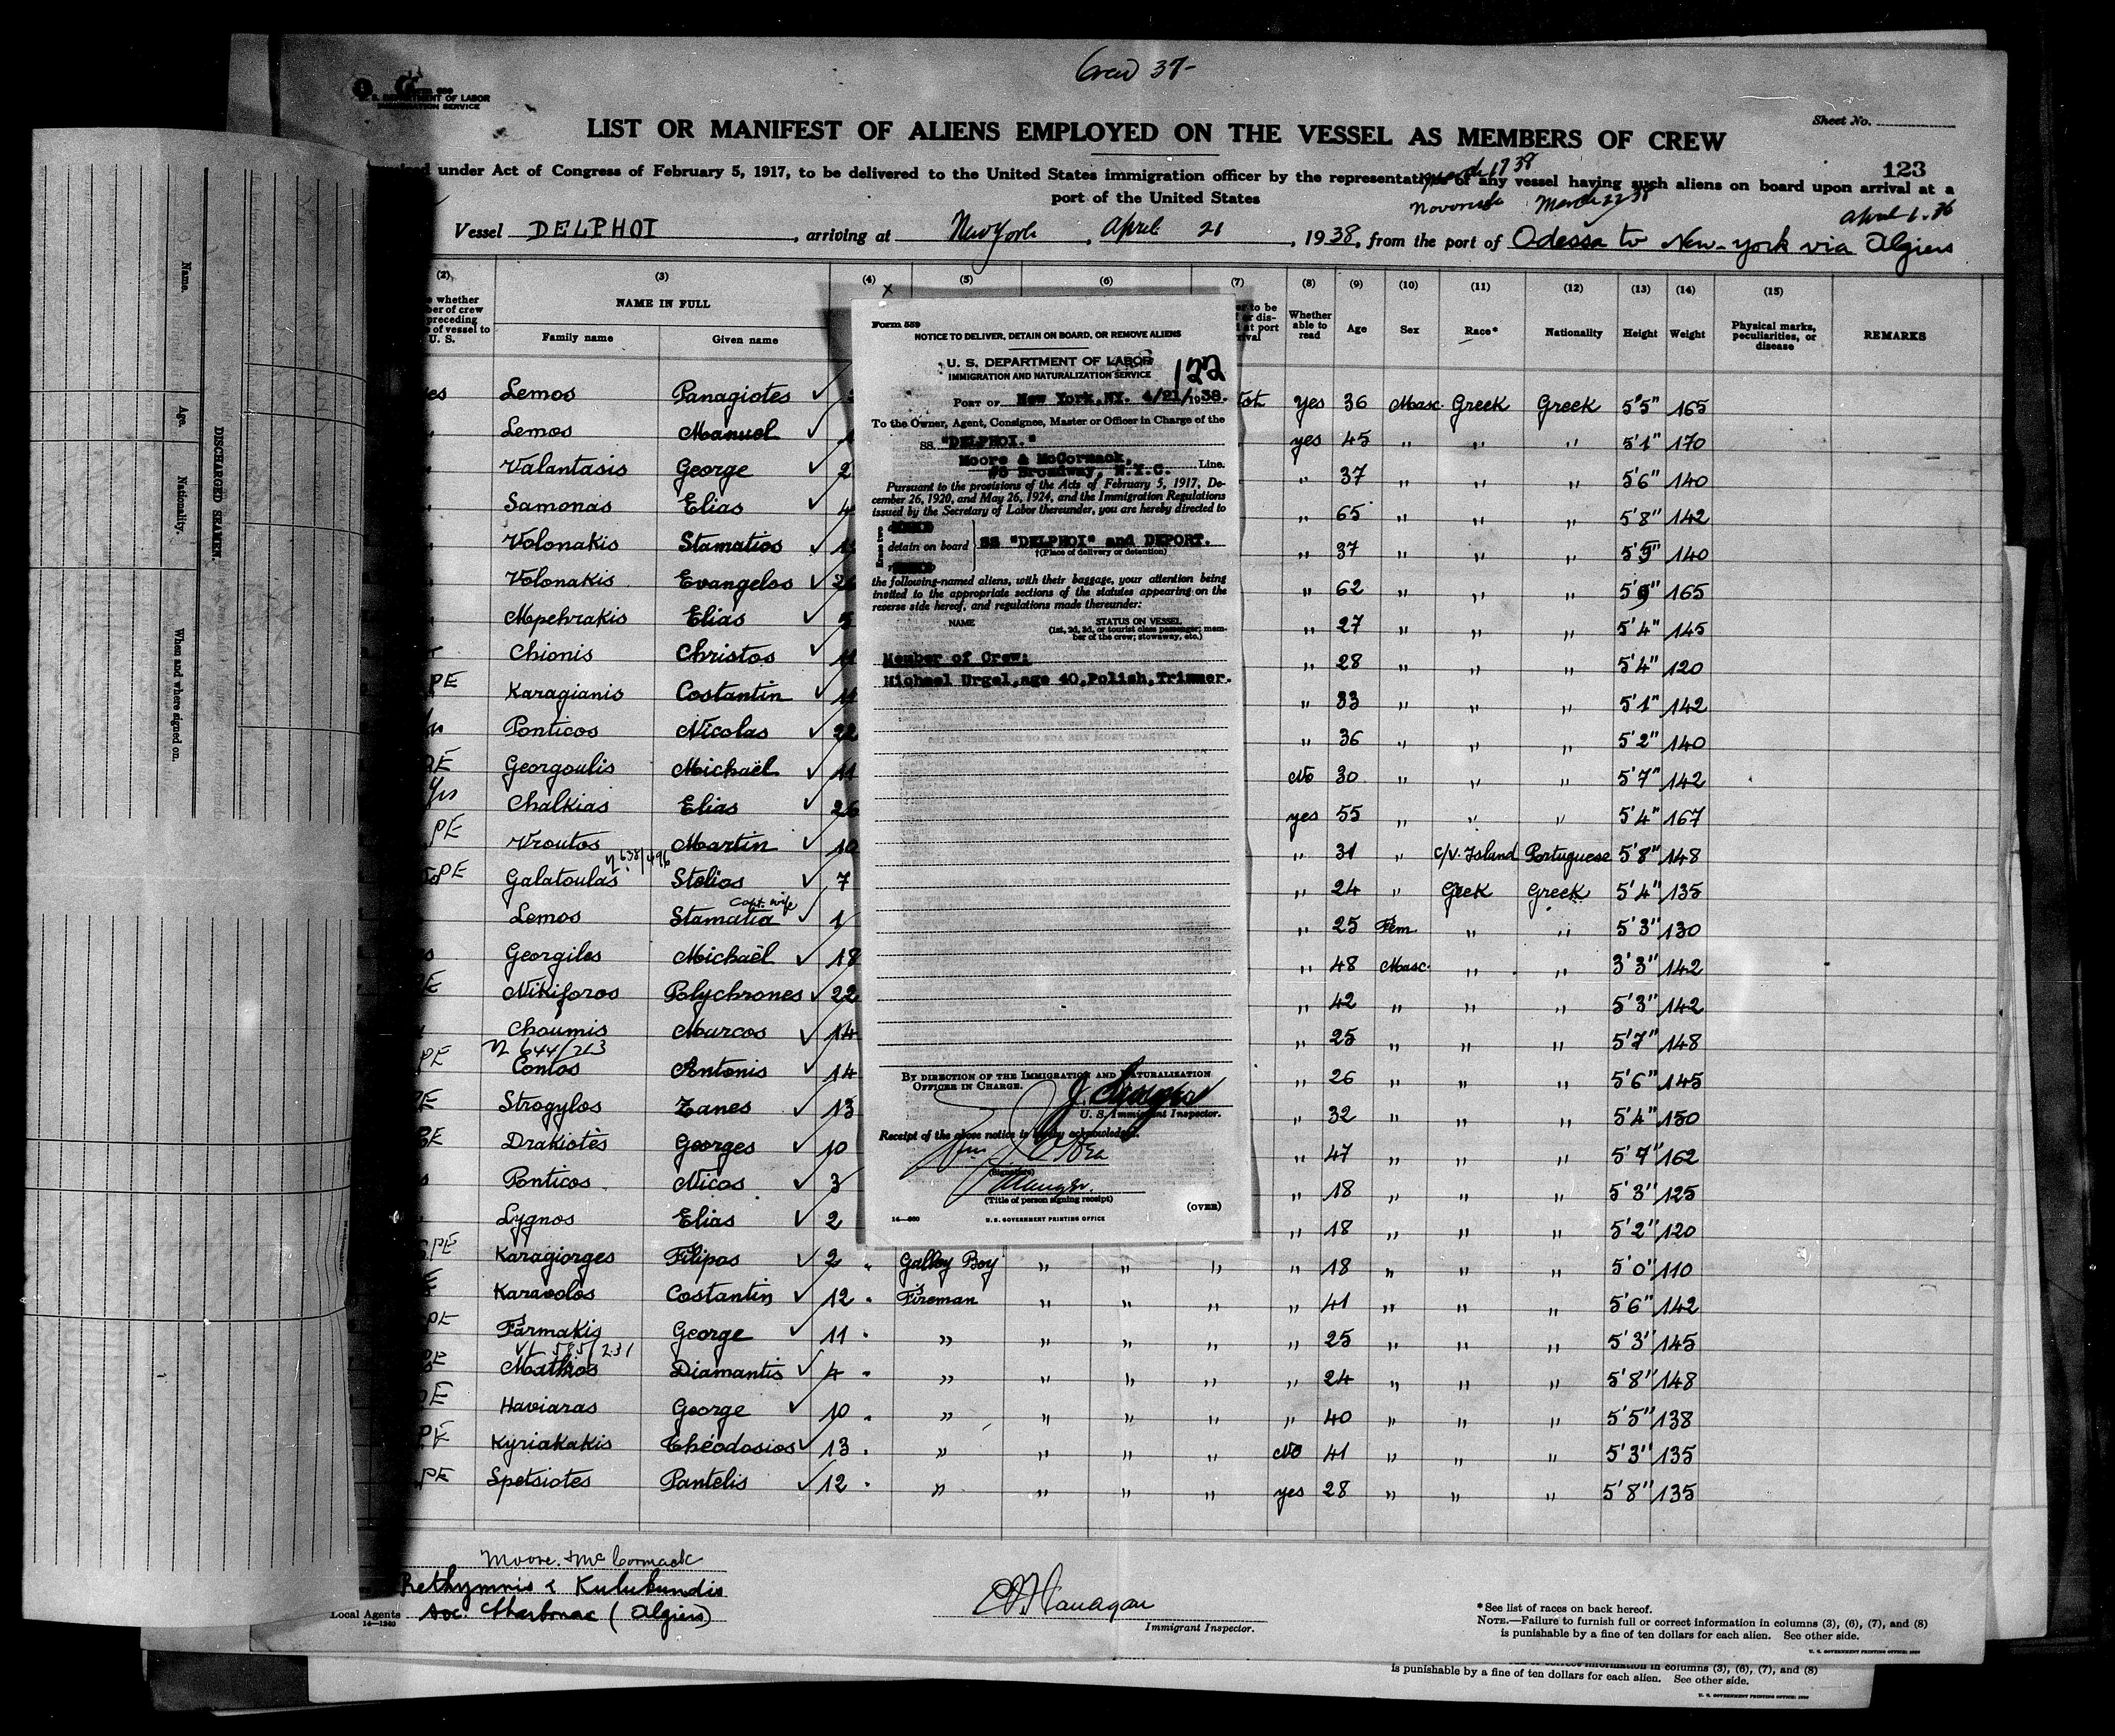 Crew 37-
U. S. DEPARTMENT OF LABOR
IMMIGRATION SERVICE
Sheet No.
LIST OR MANIFEST OF ALIENS EMPLOYED ON THE VESSEL AS MEMBERS OF CREW
123
under Act of Congress of February 5, 1917, to be delivered to the United States immigration officer by the representative of any vessel having such aliens on board upon arrival at a
port of the United States
March 22 38
Vessel DELPHOI, arriving at New York, April 21, 1938, from the port of Odessa to New-york via Algiers
(2) (3) (4) (5) (6) (7) (8) (9) (10) (11) (12) (13) (14) (15)
NAME IN FULL
Family name Given name
Whether able to read Age Sex Race* Nationality Height Weight Physical marks, peculiarities, or disease REMARKS
Lemos Panagiotes yes 36 Masc. Greek Greek 5'5" 165
Lemos Manuel yes 45 " " " 5'1" 170
Valantasis George 2 " 37 " " " 5'6" 140
Samonas Elias 4 " 65 " " " 5'8" 142
Volonakis Stamatios " 37 " " " 5'9" 140
Volonakis Evangelos " 62 " " " 5'9" 165
Mpehrakis Elias 5 " 27 " " " 5'4" 145
Chionis Christos 11 " 28 " " " 5'4" 120
PE Karagianis Costantin 11 " 33 " " " 5'1" 142
Ponticos Nicolas 22 " 36 " " " 5'2" 140
Georgoulis Michaël 11 No 30 " " " 5'7" 142
Chalkias Elias 26 yes 55 " " " 5'4" 167
PE Vroutos Martin 10 " 31 " c/v. Island Portuguese 5'8" 148
PE Galatoulas Stelios 7 " 24 " Greek Greek 5'4" 135
Capt. wife
Lemos Stamatia 1 " 25 Fem. " " 5'3" 130
Georgiles Michaël 18 " 48 Masc. " " 3'3" 142
Nikiforos Polychrones 22 " 42 " " " 5'3" 142
Choumis Marcos 14 " 25 " " " 5'7" 148
644/213
PE Contos Antonis 14 " 26 " " " 5'6" 145
Strogylos Zanes 13 " 32 " " " 5'4" 150
Drakiotès Georges 10 " 47 " " " 5'7" 162
Ponticos Nicos 3 " 18 " " " 5'3" 125
Lygnos Elias 2 " 18 " " " 5'2" 120
PE Karagiorges Filipas 2 " Galley Boy " " " " 18 " " " 5'0" 110
Karavolos Costantin 12 " Fireman " " " " 41 " " " 5'6" 142
PE Farmakis George 11 " " " " " " 25 " " " 5'3" 145
585/231
Mathios Diamantis 4 " " " " " " 24 " " " 5'8" 148
Haviaras George 10 " " " " " " 40 " " " 5'5" 138
PE Kyriakakis Théodosios 13 " " " " " No 41 " " " 5'3" 135
PE Spetsiotes Pantelis 12 " " " " " yes 28 " " " 5'8" 135
Form 559
NOTICE TO DELIVER, DETAIN ON BOARD, OR REMOVE ALIENS
U. S. DEPARTMENT OF LABOR
IMMIGRATION AND NATURALIZATION SERVICE
122
PORT OF New York, NY. 4/21/1938.
To the Owner, Agent, Consignee, Master or Officer in Charge of the
SS. "DELPHOI."
Moore & McCormack,
#5 Broadway, N.Y.C. Line.
Pursuant to the provisions of the Acts of February 5, 1917, De-
cember 26, 1920, and May 26, 1924, and the Immigration Regulations
issued by the Secretary of Labor thereunder, you are hereby directed to
Erase two
detain on board SS "DELPHOI" and DEPORT.
†(Place of delivery or detention)
the following-named aliens, with their baggage, your attention being
invited to the appropriate sections of the statutes appearing on the
reverse side hereof, and regulations made thereunder:
NAME STATUS ON VESSEL
(1st, 2d, 3d, or tourist class passenger; mem-
ber of the crew; stowaway, etc.)
Member of Crew:
Michael Urgel, age 40, Polish, Trimmer.
BY DIRECTION OF THE IMMIGRATION AND NATURALIZATION
OFFICER IN CHARGE.
U. S. Immigrant Inspector.
Receipt of the above notice is hereby acknowledged.
(Signature)
(Title of person signing receipt)
(OVER)
U. S. GOVERNMENT PRINTING OFFICE
DISCHARGED SEAMEN.
Name.
Age.
Nationality.
When and where signed on.
Moore & McCormack
Rethymnis & Kulukundis
Local Agents Soc. (Algiers)
Immigrant Inspector.
*See list of races on back hereof.
NOTE.—Failure to furnish full or correct information in columns (3), (6), (7), and (8)
is punishable by a fine of ten dollars for each alien. See other side.
U. S. GOVERNMENT PRINTING OFFICE
is punishable by a fine of ten dollars for each alien. See other side.
U. S. GOVERNMENT PRINTING OFFICE